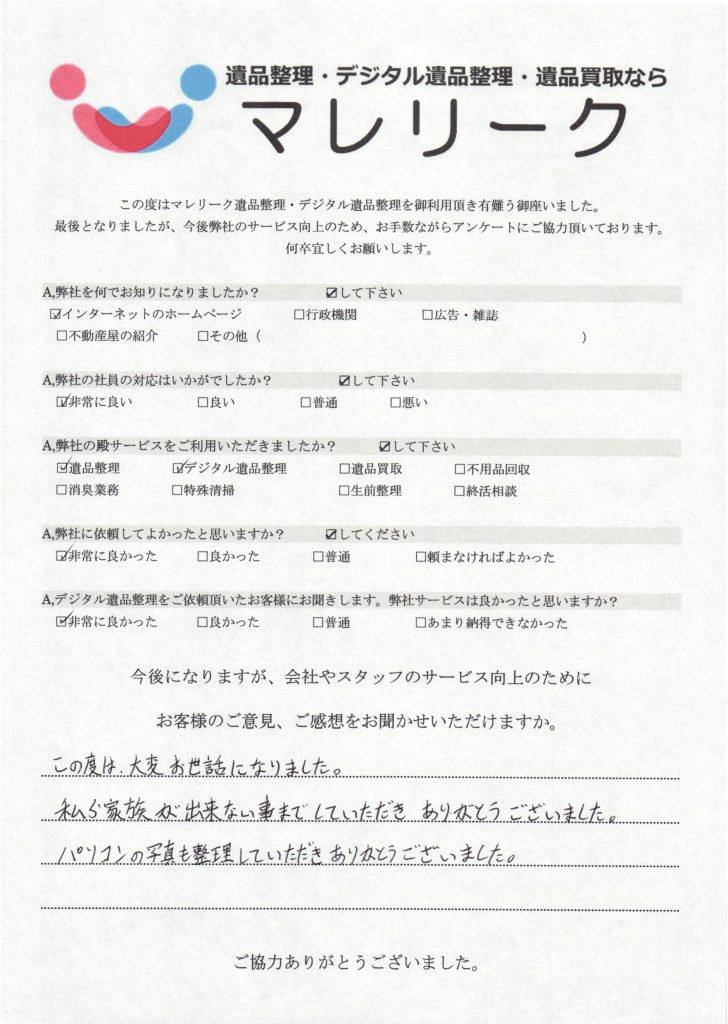 遺品整理・デジタル遺品整理・遺品買取なら
マレリーク
この度はマレリーク遺品整理・デジタル遺品整理を御利用頂き有難う御座いました。
最後となりましたが、今後弊社のサービス向上のため、お手数ながらアンケートにご協力頂いております。
何卒宜しくお願いします。
A,弊社を何でお知りになりましたか? ☑して下さい
☑インターネットのホームページ □行政機関 □広告・雑誌
□不動産屋の紹介 □その他( )
A,弊社の社員の対応はいかがでしたか? ☑して下さい
☑非常に良い □良い □普通 □悪い
A,弊社の殿サービスをご利用いただきましたか? ☑して下さい
☑遺品整理 ☑デジタル遺品整理 □遺品買取 □不用品回収
□消臭業務 □特殊清掃 □生前整理 □終活相談
A,弊社に依頼してよかったと思いますか? ☑してください
☑非常に良かった □良かった □普通 □頼まなければよかった
A,デジタル遺品整理をご依頼頂いたお客様にお聞きします。弊社サービスは良かったと思いますか?
☑非常に良かった □良かった □普通 □あまり納得できなかった
今後になりますが、会社やスタッフのサービス向上のために
お客様のご意見、ご感想をお聞かせいただけますか。
この度は、大変お世話になりました。
私ら家族が出来ない事までしていただき ありがとうございました。
パソコンの写真も整理していただきありがとうございました。
ご協力ありがとうございました。